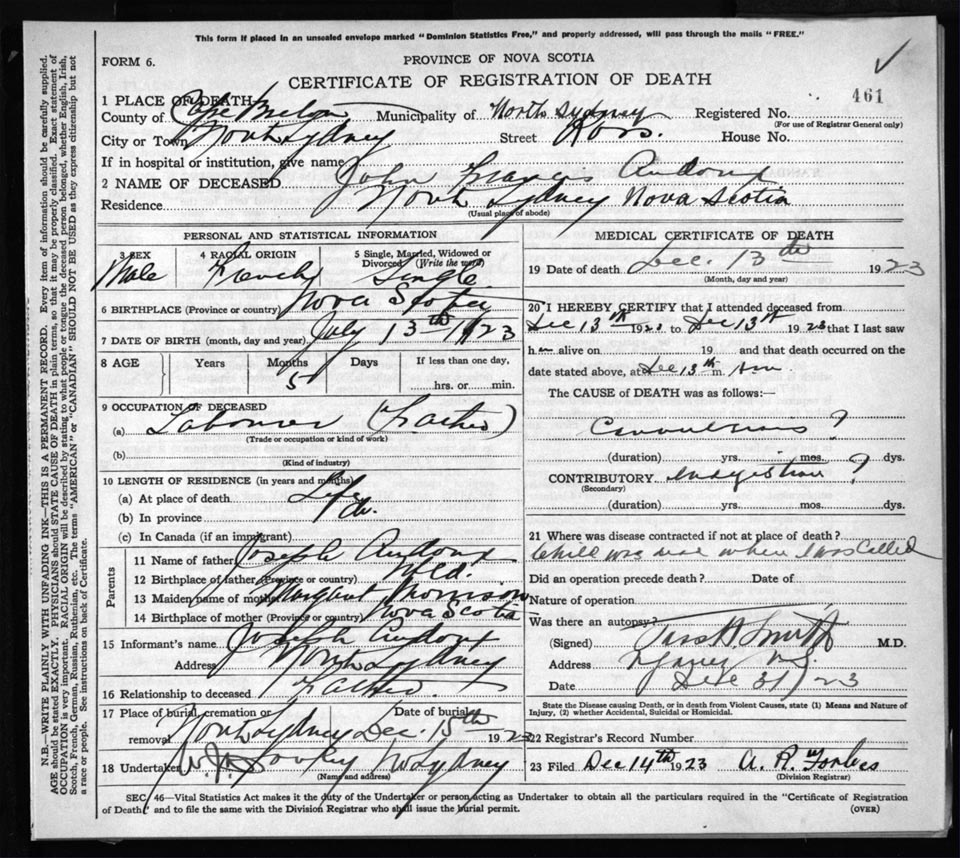 This form if placed in an unsealed envelope marked "Dominion Statistics Free," and properly addressed, will pass through the mails "FREE."
FORM 6.
PROVINCE OF NOVA SCOTIA
CERTIFICATE OF REGISTRATION OF DEATH
461
1 PLACE OF DEATH
County of Cape Breton Municipality of North Sydney Registered No.
(For use of Registrar General only)
City or Town North Sydney Street House No.
If in hospital or institution, give name
2 NAME OF DECEASED John Francis Andony
Residence North Sydney Nova Scotia
(Usual place of abode)
PERSONAL AND STATISTICAL INFORMATION
3 SEX 4 RACIAL ORIGIN 5 Single, Married, Widowed or Divorced (Write the word)
Male French Single
6 BIRTHPLACE (Province or country) Nova Scotia
7 DATE OF BIRTH (month, day and year) July 13th 1923
8 AGE Years Months Days If less than one day,
5 hrs. or min.
9 OCCUPATION OF DECEASED
(a) Labourer (Father)
(Trade or occupation or kind of work)
(b)
(Kind of industry)
10 LENGTH OF RESIDENCE (in years and months)
(a) At place of death Life
(b) In province do.
(c) In Canada (if an immigrant)
Parents
11 Name of father Joseph Andony
12 Birthplace of father (Province or country) Nfld.
13 Maiden name of mother Margaret
14 Birthplace of mother (Province or country) Nova Scotia
15 Informant's name Joseph Andony
Address North Sydney
16 Relationship to deceased Father.
17 Place of burial, cremation or removal Date of burial
North Sydney Dec. 15th 1923
18 Undertaker N Sydney
(Name and address)
MEDICAL CERTIFICATE OF DEATH
19 Date of death Dec. 13th 1923
(Month, day and year)
20 I HEREBY CERTIFY that I attended deceased from
Dec 13th 1923 to Dec 13th 1923 that I last saw
h alive on 19 and that death occurred on the
date stated above, at Dec 13th m.
The CAUSE of DEATH was as follows:—
Convulsions ?
(duration) yrs. mos. dys.
CONTRIBUTORY Indigestion ?
(Secondary)
(duration) yrs. mos. dys.
21 Where was disease contracted if not at place of death?
Child was when I was called
Did an operation precede death? Date of
Nature of operation
Was there an autopsy?
(Signed) Smith M.D.
Address
Date Dec 31 / 23
State the Disease causing Death, or in death from Violent Causes, state (1) Means and Nature of Injury, (2) whether Accidental, Suicidal or Homicidal.
22 Registrar's Record Number
23 Filed Dec 14th 1923 A. R. Forbes
(Division Registrar)
SEC. 46—Vital Statistics Act makes it the duty of the Undertaker or person acting as Undertaker to obtain all the particulars required in the "Certificate of Registration
of Death," and to file the same with the Division Registrar who shall issue the burial permit.
(OVER)
N.B.—WRITE PLAINLY WITH UNFADING INK—THIS IS A PERMANENT RECORD. Every item of information should be carefully supplied.
AGE should be stated EXACTLY. PHYSICIANS should STATE CAUSE OF DEATH in plain terms, so that it may be properly classified. Exact statement of
OCCUPATION is very important. RACIAL ORIGIN will be described by stating to what people or tongue the deceased person belonged, whether English, Irish,
Scotch, French, German, Russian, Ruthenian, etc. The terms "AMERICAN" or "CANADIAN" SHOULD NOT BE USED as they express citizenship but not
a race or people. See instructions on back of Certificate.